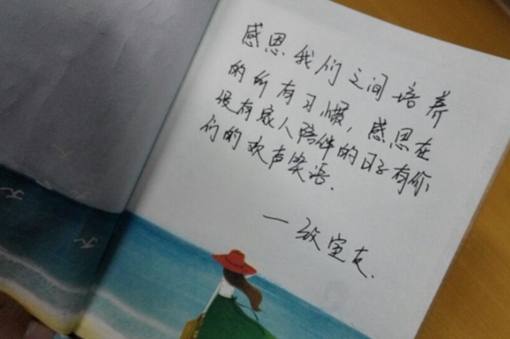 感恩我们之间培养
的所有习惯，感恩在
没有家人陪伴的日子有你
们的欢声笑语．
——致室友．